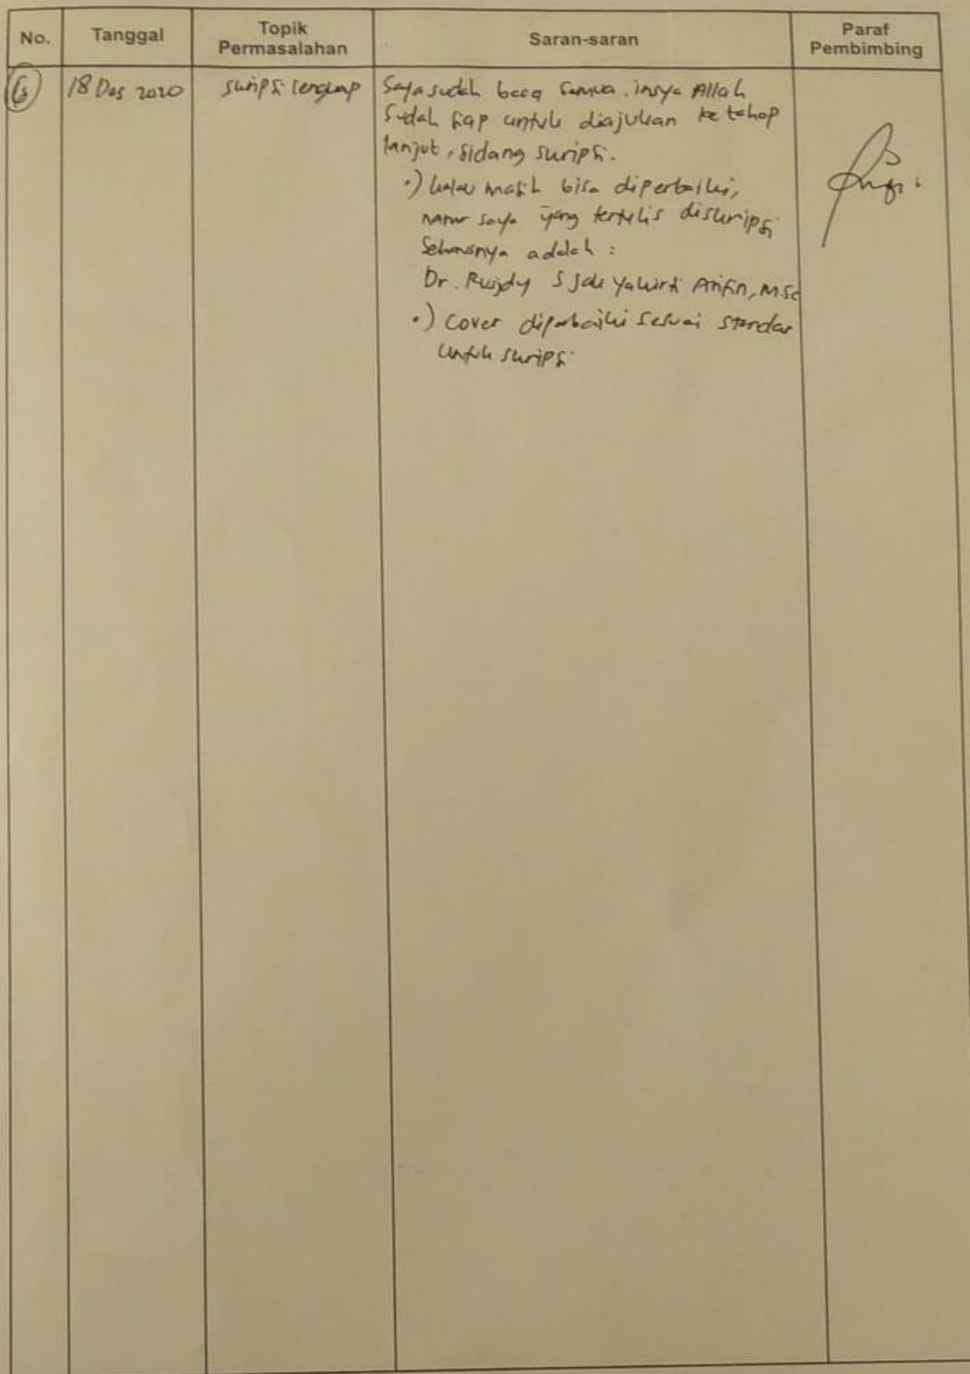 No. Tanggal Topik Permasalahan Saran-saran Paraf Pembimbing
6 18 Des 2020 skripsi lengkap Saya sudah baca semua. insya Allah
sudah siap untuk diajukan ke tahap
lanjut, sidang skripsi.
•) kalau masih bisa diperbaiki,
nama saya yang tertulis diskripsi
seharusnya adalah :
Dr. Arifin, M.Sc
•) Cover diperbaiki sesuai standar
untuk skripsi